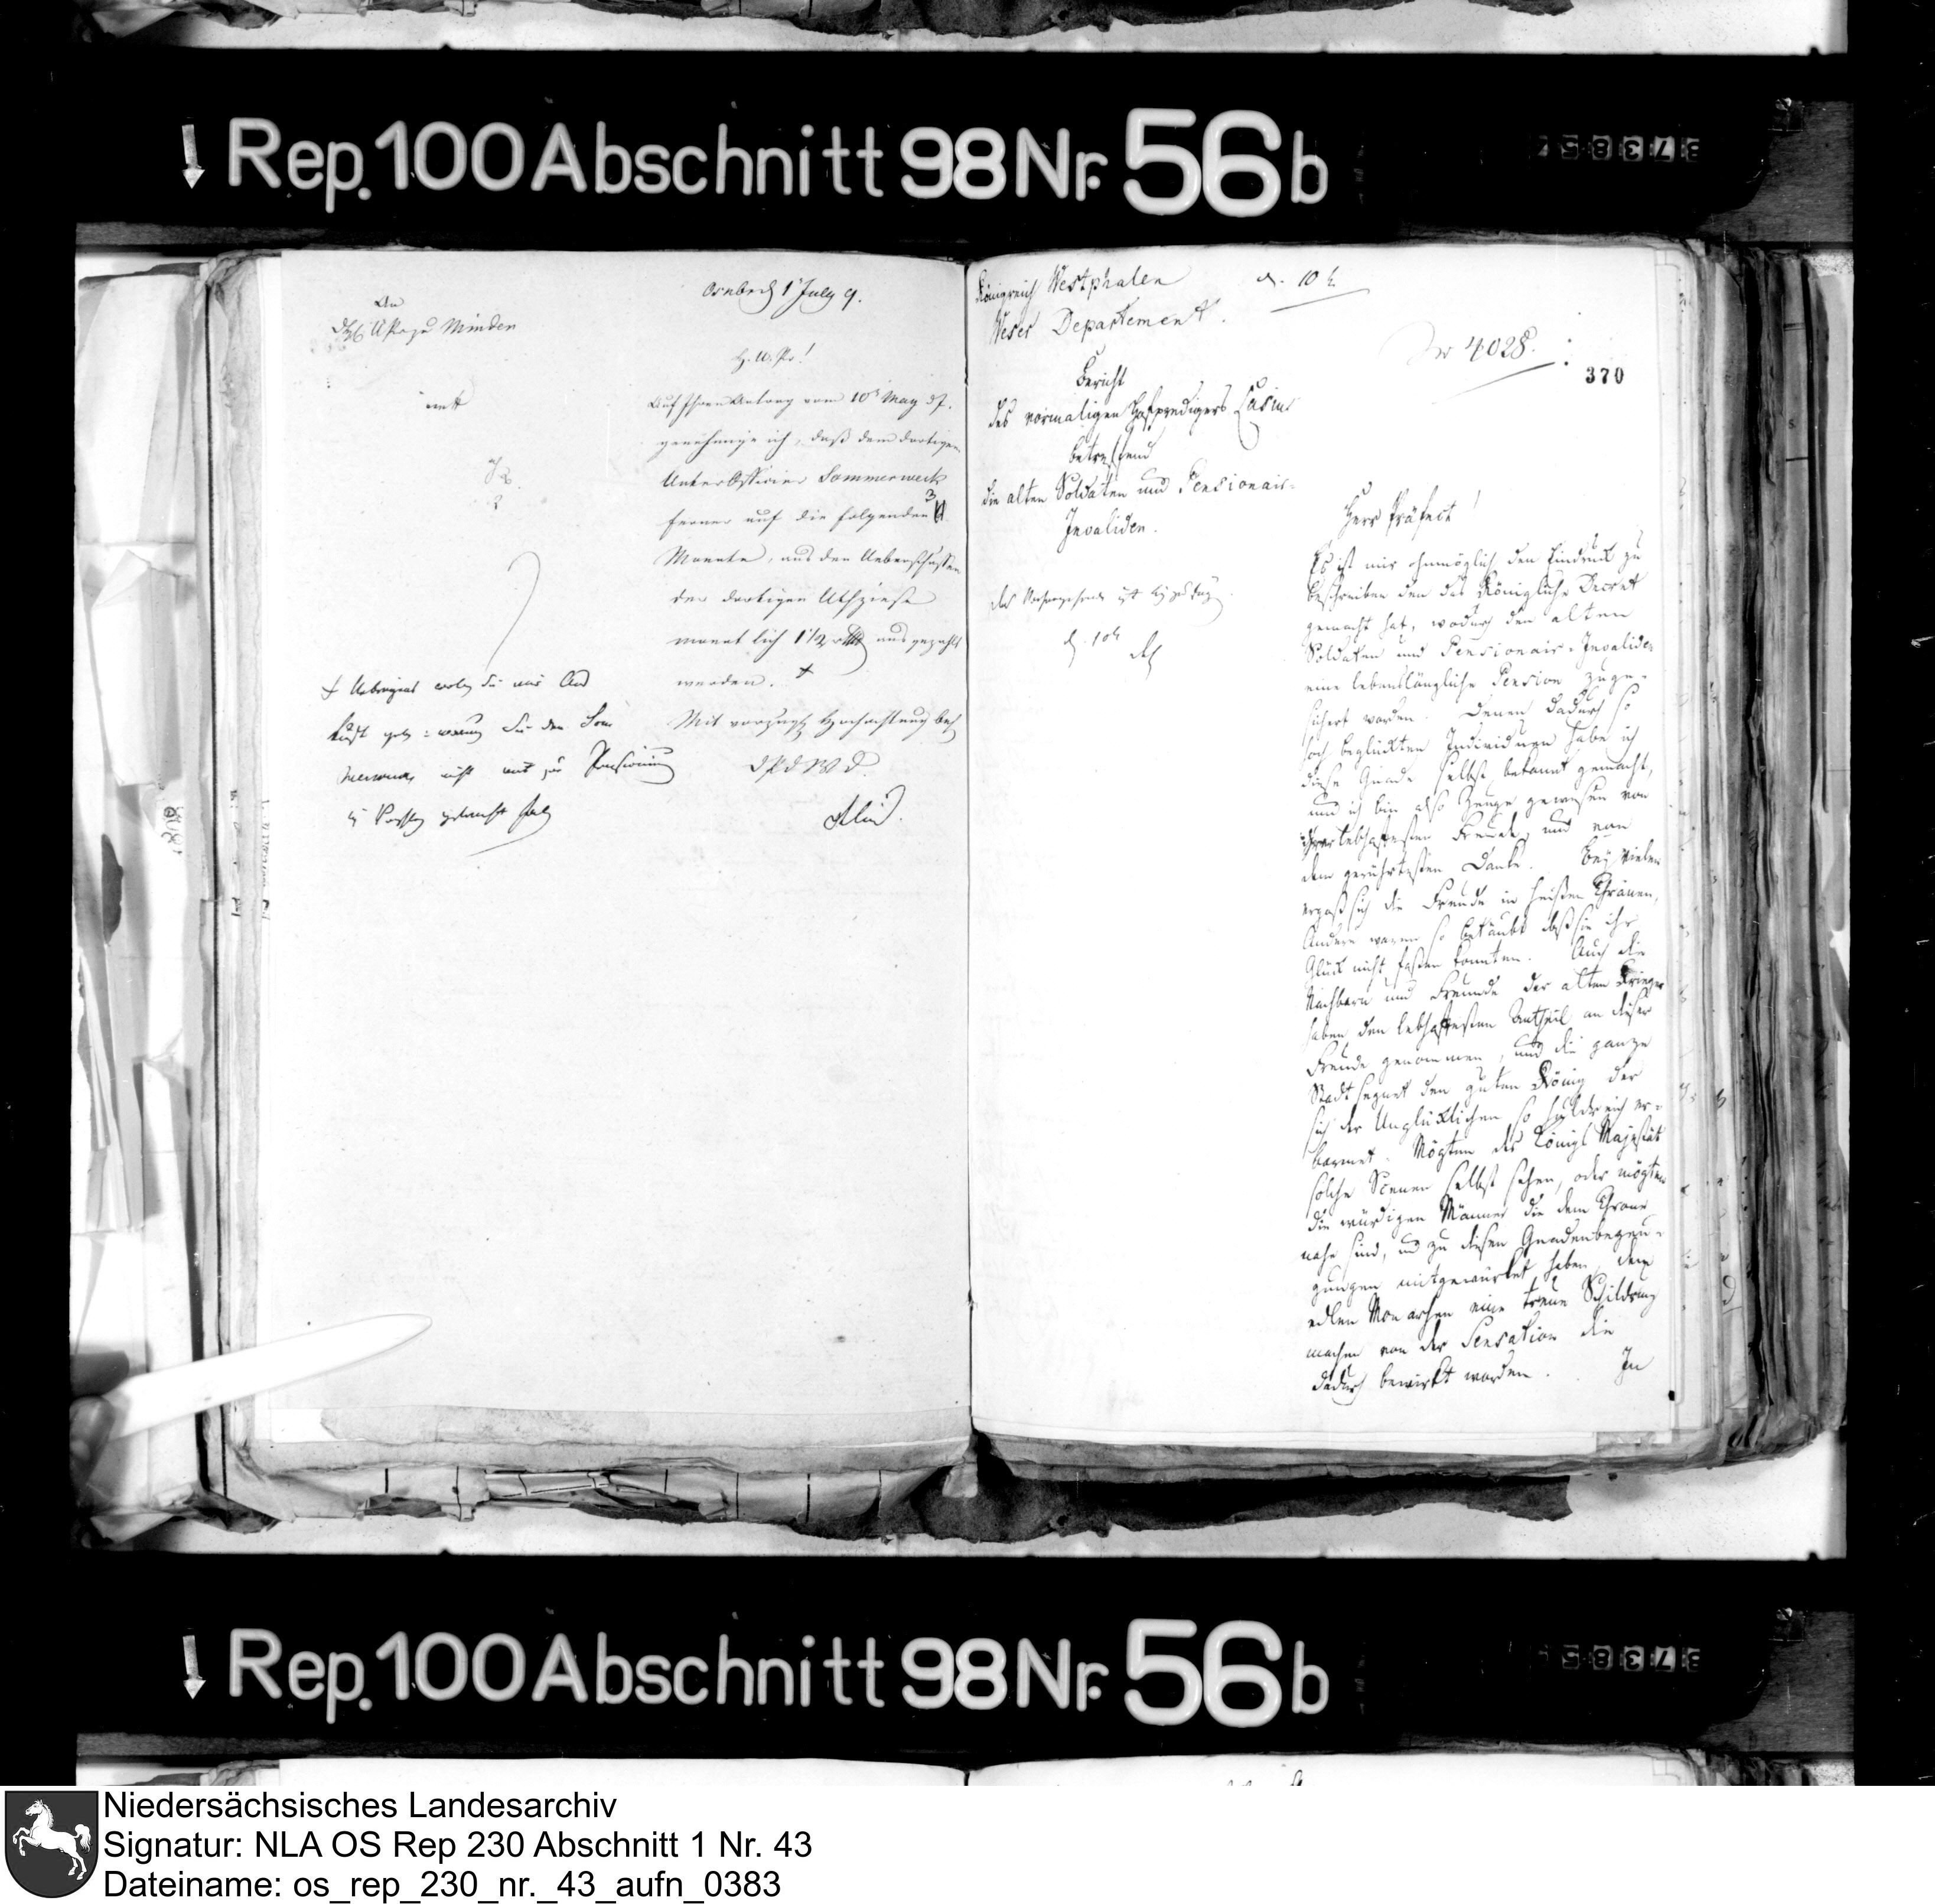 Rep. 100 Abschnitt 98 Nr. 56 b
Osnbrck 1 July 9.
An
UPr zu Minden
H. U. Pr!
Auf Ihren Antrag vom 10t May dJ.
genehmige ich, daß dem dortigen
Unterofficier Sommerweck
ferner auf die folgenden 3
Monate, aus den Ueberschüssen
der dortigen
monatlich 1 1/2 ausgezahlt
werden. +
Mit vorzügl Hochachtung
D P d W D
+ Uebrigens wollen Sie mir
kunft geben: warum Sie den Som
nicht mit zur Pensionirung
in Vorschlag gebracht haben
Königreich Westphalen
Weser Departement.
Bericht
des vormaligen Hofpredigers
betreffend
die alten Soldaten und Pensionair-
Invaliden.
Nr 4028.
370
Herr Präfect!
Es ist mir ohnmöglich den Eindruck zu
beschreiben den das Königliche Decret
gemacht hat, wodurch den alten
Soldaten und Pensionair-Invaliden
eine lebenslängliche Pension zuge-
sichert worden. Denen dadurch so
hoch beglückten Individuen habe ich
diese Gnade selbst bekannt gemacht,
und ich bin also Zeuge gewesen von
ihrer lebhaftesten Freude, und von
dem gerührtesten Danke. Bey vielen
ergoß sich die Freude in heißen Thränen,
Andere waren so betäubt daß sie ihr
Glück nicht faßen konnten. Auch die
Nachbarn und Freunde der alten Krieger
haben den lebhaftesten Antheil an dieser
Freude genommen, und die ganze
Stadt segnet den guten König der
sich der Unglücklichen so huldreich er-
barmet. Mögten des Königs Majestät
solche Scenen selbst sehen, oder mögten
die würdigen Männer die dem Throne
nahe sind, und zu diesen Gnadenbezeu-
gungen mitgewürket haben, dem
edlen Monarchen eine treue Schildrung
machen von der Sensation die
dadurch bewirkt worden. In
Rep. 100 Abschnitt 98 Nr. 56 b
Niedersächsisches Landesarchiv
Signatur: NLA OS Rep 230 Abschnitt 1 Nr. 43
Dateiname: os_rep_230_nr._43_aufn_0383